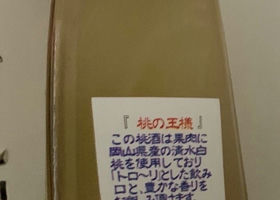 『 桃の王様 』
この桃酒は果肉に
岡山県産の清水白
桃を使用しており
「トロ〜リ」とした飲み
口と、豊かな香りを